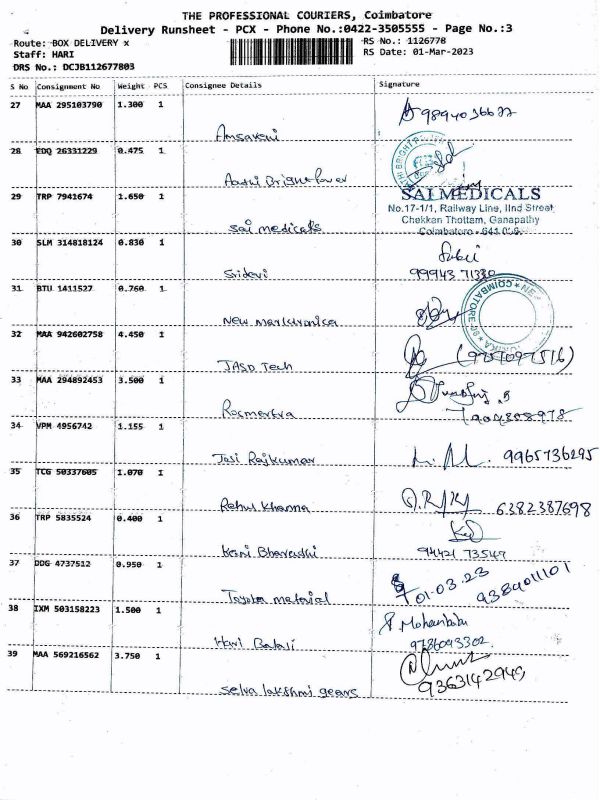 THE PROFESSIONAL COURIERS, Coimbatore
Delivery Runsheet - PCX - Phone No.:0422-3505555 - Page No.:3
Route: BOX DELIVERY x
RS No.: 1126778
Staff: HARI
RS Date: 01-Mar-2023
DRS No.: DCJB112677803
S No Consignment No Weight PCS Consignee Details Signature
27 MAA 295103790 1.300 1
9894036677
Amsaveni
28 EDQ 26331229 0.475 1
29 TRP 7941674 1.650 1
SAI MEDICALS
No.17-1/1, Railway Line, IInd Street
Chekkan Thottam, Ganapathy
Coimbatore - 641 006
Sai medicals
30 SLM 314818124 0.830 1
Sridevi
99943 71330
31 BTU 1411527 0.760 1
COIMBATORE
32 MAA 942602758 4.450 1
JASD Tech
(9751097516)
33 MAA 294892453 3.500 1
34 VPM 4956742 1.155 1
Jasi Rajkumar
9965736295
35 TCG 50337605 1.070 1
Rahul Khanna
6382387698
36 TRP 5835524 0.400 1
94421 73549
37 DDG 4737512 0.950 1
01.03.23
9384011101
Toyota material
38 IXM 503158223 1.500 1
Hari Balaji
9786093302
39 MAA 569216562 3.750 1
9363142949
Selva lakshmi gears